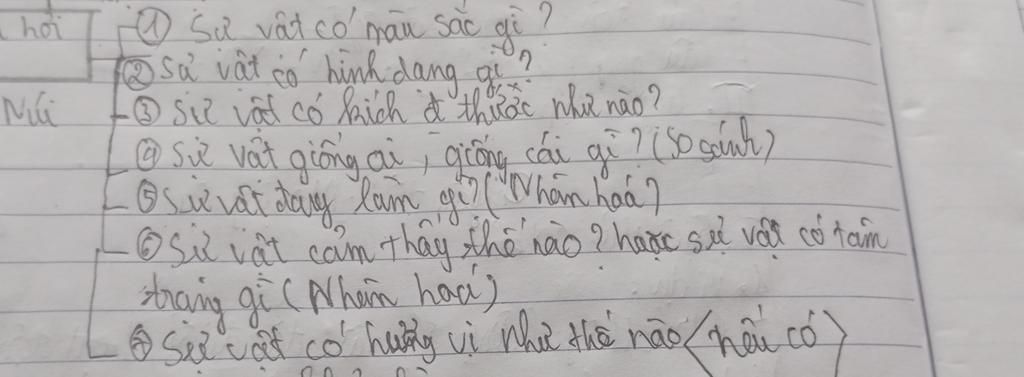 hỏi
① Sự vật có màu sắc gì?
② Sự vật có hình dạng gì?
Núi ③ Sự vật có kích thước như nào?
④ Sự vật giống ai, giống cái gì? (so sánh)
⑤ Sự vật đang làm gì? (Nhân hoá)
⑥ Sự vật cảm thấy thế nào? hoặc sự vật có tâm
trạng gì (Nhân hoá)
⑦ Sự vật có hương vị như thế nào <nếu có>